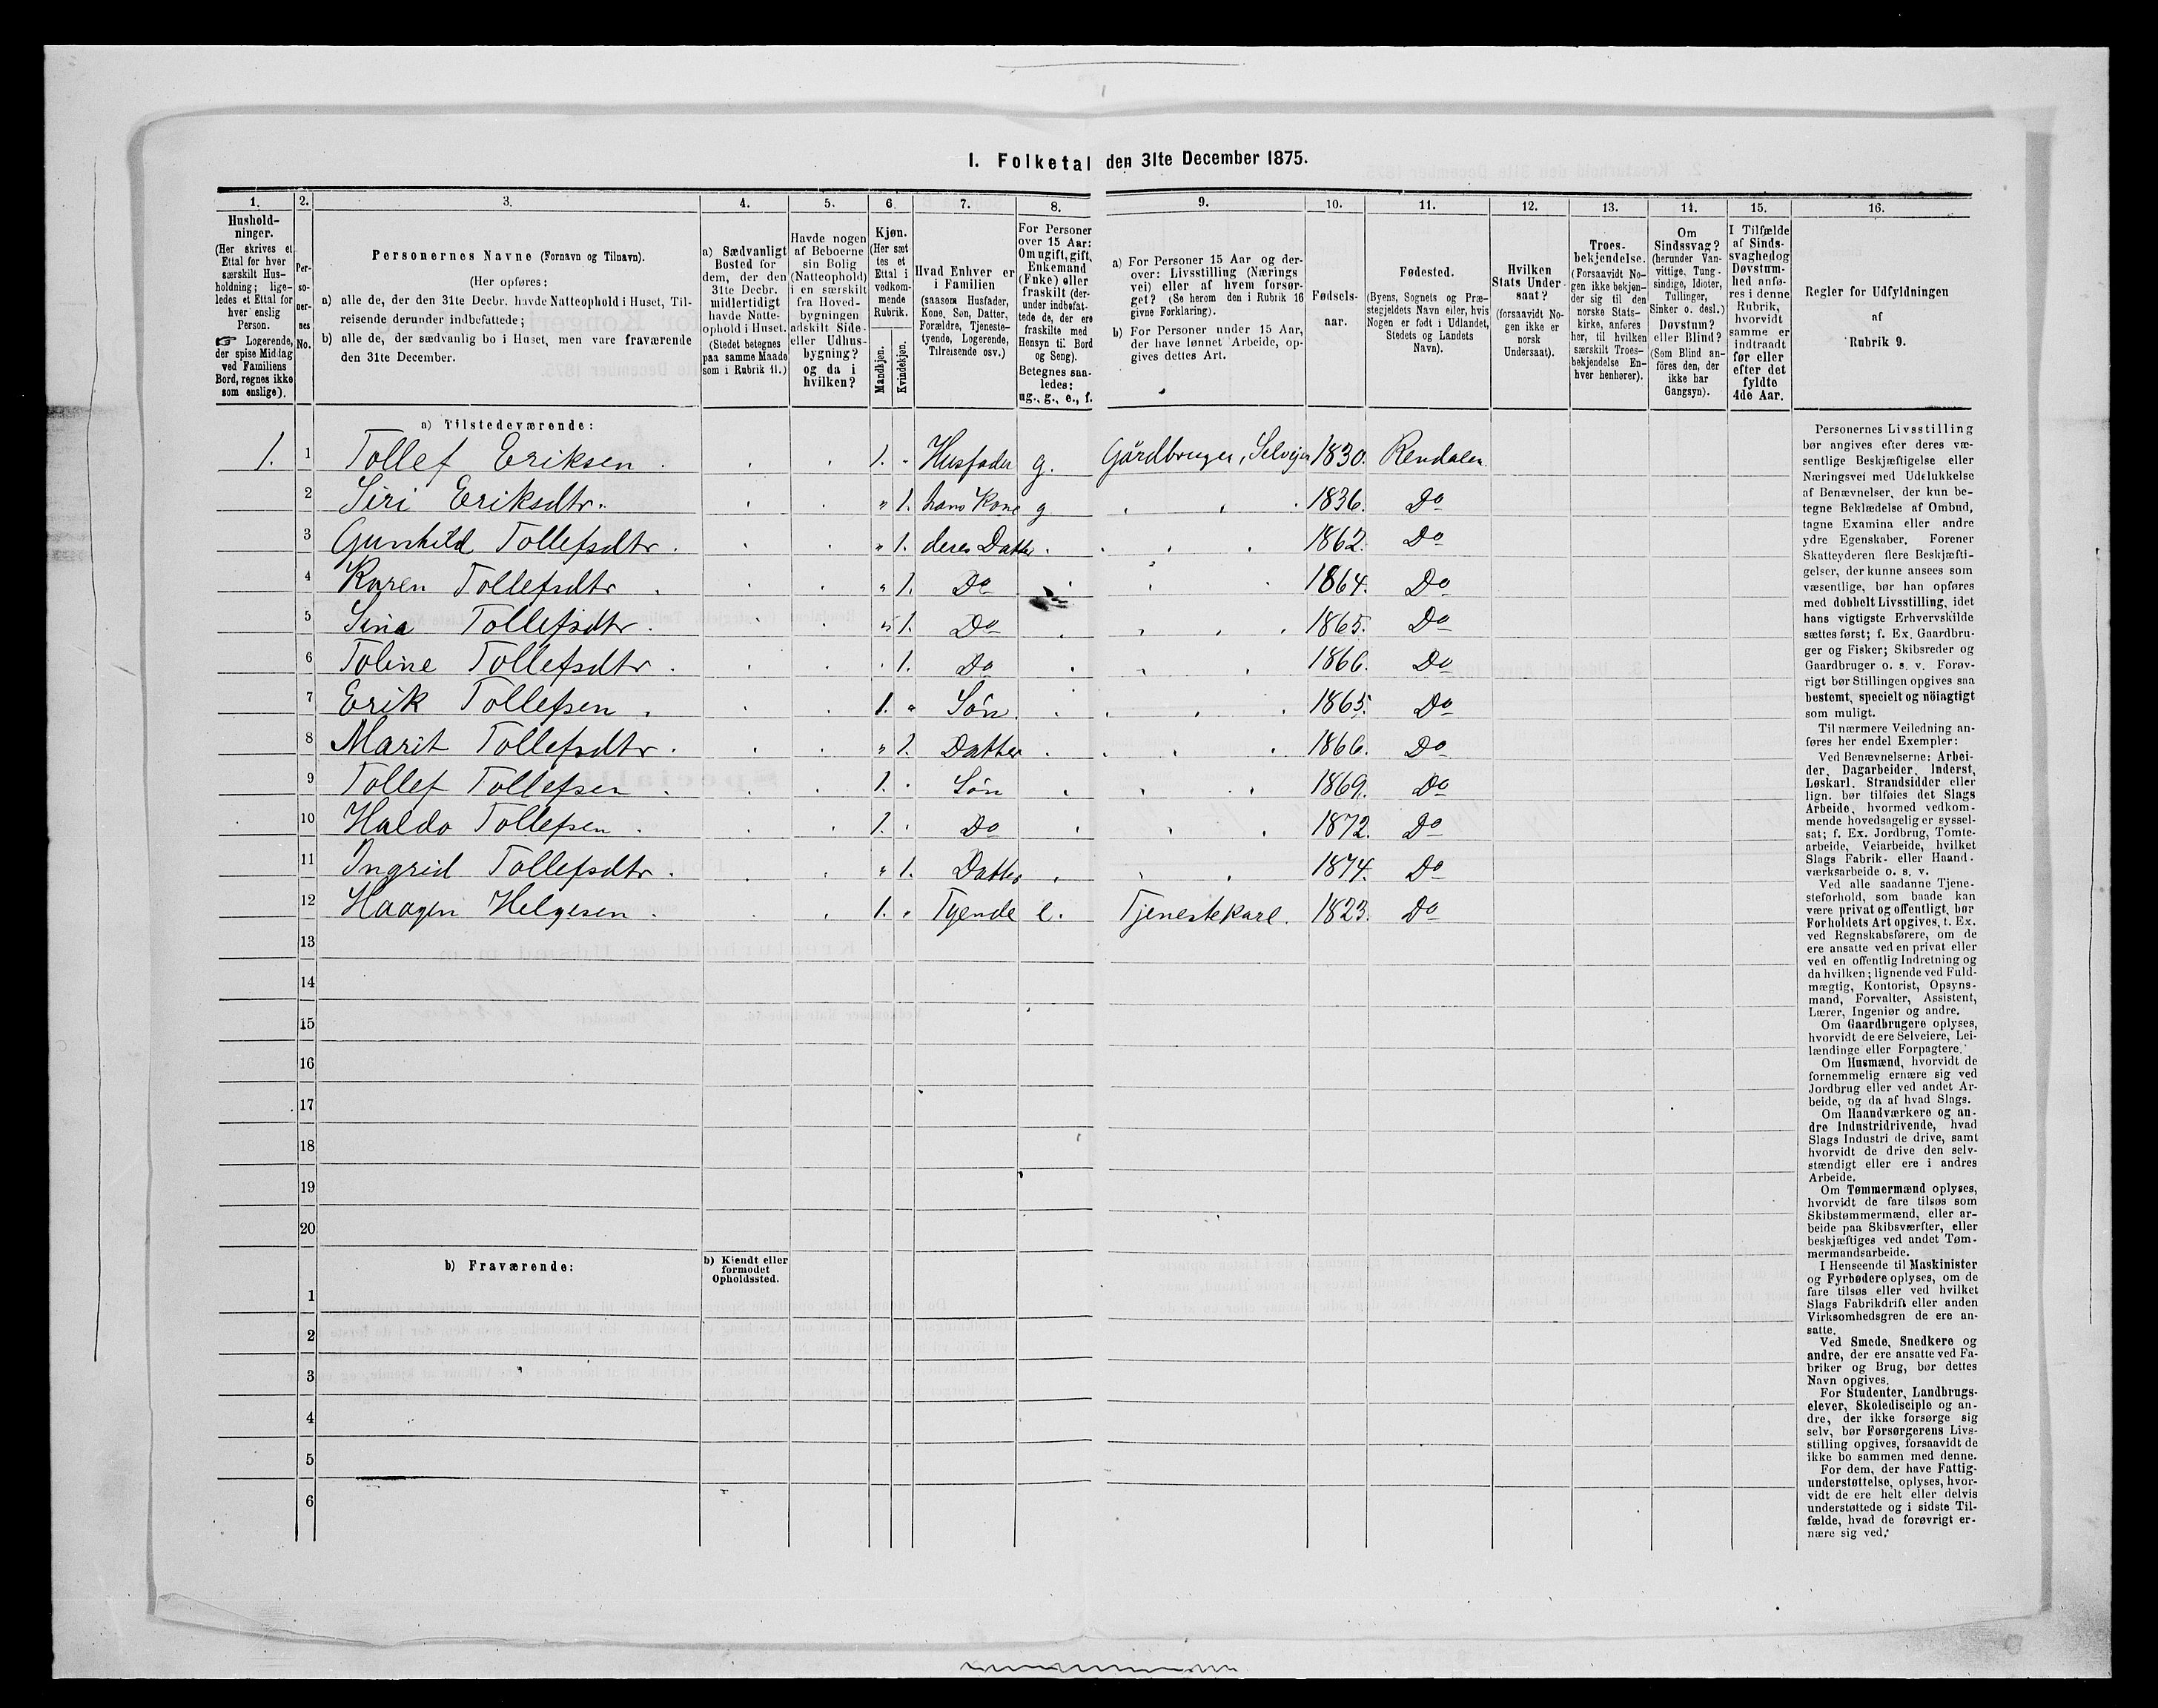 I. Folketal den 31te December 1875.
1. 2. 3. 4. 5. 6. 7. 8. 9. 10. 11. 12. 13. 14. 15. 16.
Hushold-
ninger.
(Her skrives et
Ettal for hver
særskilt Hus-
holdning; lige-
ledes et Ettal for
hver enslig
Person.
☞ Logerende,
der spise Middag
ved Familiens
Bord, regnes ikke
som enslige).
Per-
so-
ner-
nes
No.
Personernes Navne (Fornavn og Tilnavn).
(Her opføres:
a) alle de, der den 31te Decbr. havde Natteophold i Huset, Til-
reisende derunder indbefattede;
b) alle de, der sædvanlig bo i Huset, men vare fraværende
den 31te December.
a) Sædvanligt
Bosted for
dem, der den
31te Decbr.
midlertidigt
havde Natte-
ophold i Huset.
(Stedet betegnes
paa samme Maade
som i Rubrik 11.)
Havde nogen
af Beboerne
sin Bolig
(Natteophold)
i en særskilt
fra Hoved-
bygningen
adskilt Side-
eller Udhus-
bygning?
og da i
hvilken?
Kjøn.
(Her sæt
tes et
Ettal i
vedkom-
mende
Rubrik.
Mandkjøn.
Kvindekjøn.
Hvad Enhver er
i Familien
(saasom Husfader,
Kone, Søn, Datter,
Forældre, Tjeneste-
tyende, Logerende,
Tilreisende osv.)
For Personer
over 15 Aar:
Om ugift, gift,
Enkemand
(Enke) eller
fraskilt (der-
under indbefat-
tede de, der ere
fraskilte med
Hensyn til Bord
og Seng).
Betegnes saa-
ledes:
ug., g., e., f.
a) For Personer 15 Aar og der-
over: Livsstilling (Nærings
vei) eller af hvem forsør-
get? (Se herom den i Rubrik 16
givne Forklaring).
b) For Personer under 15 Aar,
der have lønnet Arbeide, op-
gives dettes Art.
Fødsels-
aar.
Fødested.
(Byens, Sognets og Præ-
stegjeldets Navn eller, hvis
Nogen er født i Udlandet,
Stedets og Landets
Navn).
Hvilken
Stats Under-
saat?
(forsaavidt No-
gen ikke er
norsk
Undersaat).
Troes-
bekjendelse.
(Forsaavidt No-
gen ikke bekjen-
der sig til den
norske Stats-
kirke, anføres
her, til hvilken
særskilt Troes-
bekjendelse En-
hver henhører).
Om
Sindssvag?
(herunder Van-
vittige, Tung-
sindige, Idioter,
Tullinger,
Sinker o. desl.)
Døvstum?
eller Blind?
(Som Blind an-
føres den, der
ikke har
Gangsyn).
I Tilfælde
af Sinds-
svaghed og
Døvstum-
hed anfø-
res i denne
Rubrik,
hvorvidt
samme er
indtraadt
før eller
efter det
fyldte
4de Aar.
Regler for Udfyldningen
af
Rubrik 9.
a) Tilstedeværende:
1. 1 Tollef Eriksen . 1. Husfader g. Gårdbruger, Selvejer 1830. Rendalen.
2 Siri Eriksdtr. " 1. hans Kone g 1836. Do
3 Gunhild Tollefsdtr. " 1. deres Datter 1862. Do
4 Karen Tollefsdtr " 1. Do 1864. Do
5 Sina Tollefsdtr. " 1. Do 1865. Do
6 Toline Tollefsdtr. 1. Do 1866. Do
7 Erik Tollefsen. 1. " Søn. 1865. Do
8 Marit Tollefsdtr. " 1. Datter 1866. Do
9 Tollef Tollefsen 1. Søn 1869. Do
10 Haldo Tollefsen 1. Do 1872. Do
11 Ingrid Tollefsdtr. " 1. Datter 1874. Do
12 Haagen Helgesen. 1. Tyende e. Tjenestekarl. 1823. Do
13
14
15
16
17
18
19
20
b) Fraværende:
b) Kjendt eller
formodet
Opholdssted.
1
2
3
4
5
6
Personernes Livsstilling
bør angives efter deres væ-
sentlige Beskjæftigelse eller
Næringsvei med Udelukkelse
af Benævnelser, der kun be-
tegne Beklædelse af Ombud,
tagne Examina eller andre
ydre Egenskaber. Forener
Skatteyderen flere Beskjæfti-
gelser, der kunne ansees som
væsentlige, bør han opføres
med dobbelt Livsstilling, idet
hans vigtigste Erhvervskilde
sættes først; f. Ex. Gaardbru-
ger og Fisker; Skibsreder og
Gaardbruger o. s. v. Forøv-
rigt bør Stillingen opgives saa
bestemt, specielt og nöiagtigt
som muligt.
Til nærmere Veiledning an-
føres her endel Exempler:
Ved Benævnelserne: Arbei-
der, Dagarbeider, Inderst,
Løskarl, Strandsidder eller
lign. bør tilføies det Slags
Arbeide, hvormed vedkom-
mende hovedsagelig er syssel-
sat; f. Ex. Jordbrug, Tomte-
arbeide, Veiarbeide, hvilket
Slags Fabrik- eller Haand-
værksarbeide o. s. v.
Ved alle saadanne Tjene-
steforhold, som baade kan
være privat og offentligt, bør
Forholdets Art opgives, t. Ex.
ved Regnskabsførere, om de
ere ansatte ved en privat eller
ved en offentlig Indretning og
da hvilken; lignende ved Fuld-
mægtig, Kontorist, Opsyns-
mand, Forvalter, Assistent,
Lærer, Ingeniør og andre.
Om Gaardbrugere oplyses,
hvorvidt de ere Selveiere, Lei-
lændinge eller Forpagtere.
Om Husmænd, hvorvidt de
fornemmelig ernære sig ved
Jordbrug eller ved andet Ar-
beide, og da af hvad Slags.
Om Haandværkere og an-
dre Industridrivende, hvad
Slags Industri de drive, samt
hvorvidt de drive den selv-
stændigt eller ere i andres
Arbeide.
Om Tømmermænd oplyses,
hvorvidt de fare tilsøs som
Skibstømmermænd, eller ar-
beide paa Skibsværfter, eller
beskjæftiges ved andet Tøm-
mermandsarbeide.
I Henseende til Maskinister
og Fyrbødere oplyses, om de
fare tilsøs eller ved hvilket
Slags Fabrikdrift eller anden
Virksomhedsgren de ere an-
satte.
Ved Smede, Snedkere og
andre, der ere ansatte ved Fa-
briker og Brug, bør dettes
Navn opgives.
For Studenter, Landbrugs-
elever, Skoledisciple og an-
dre, der ikke forsørge sig
selv, bør Forsørgerens Livs-
stilling opgives, forsaavidt de
ikke bo sammen med denne.
For dem, der have Fattig-
understøttelse, oplyses, hvor-
vidt de ere helt eller delvis
understøttede og i sidste Til-
fælde, hvad de forøvrigt er-
nære sig ved.